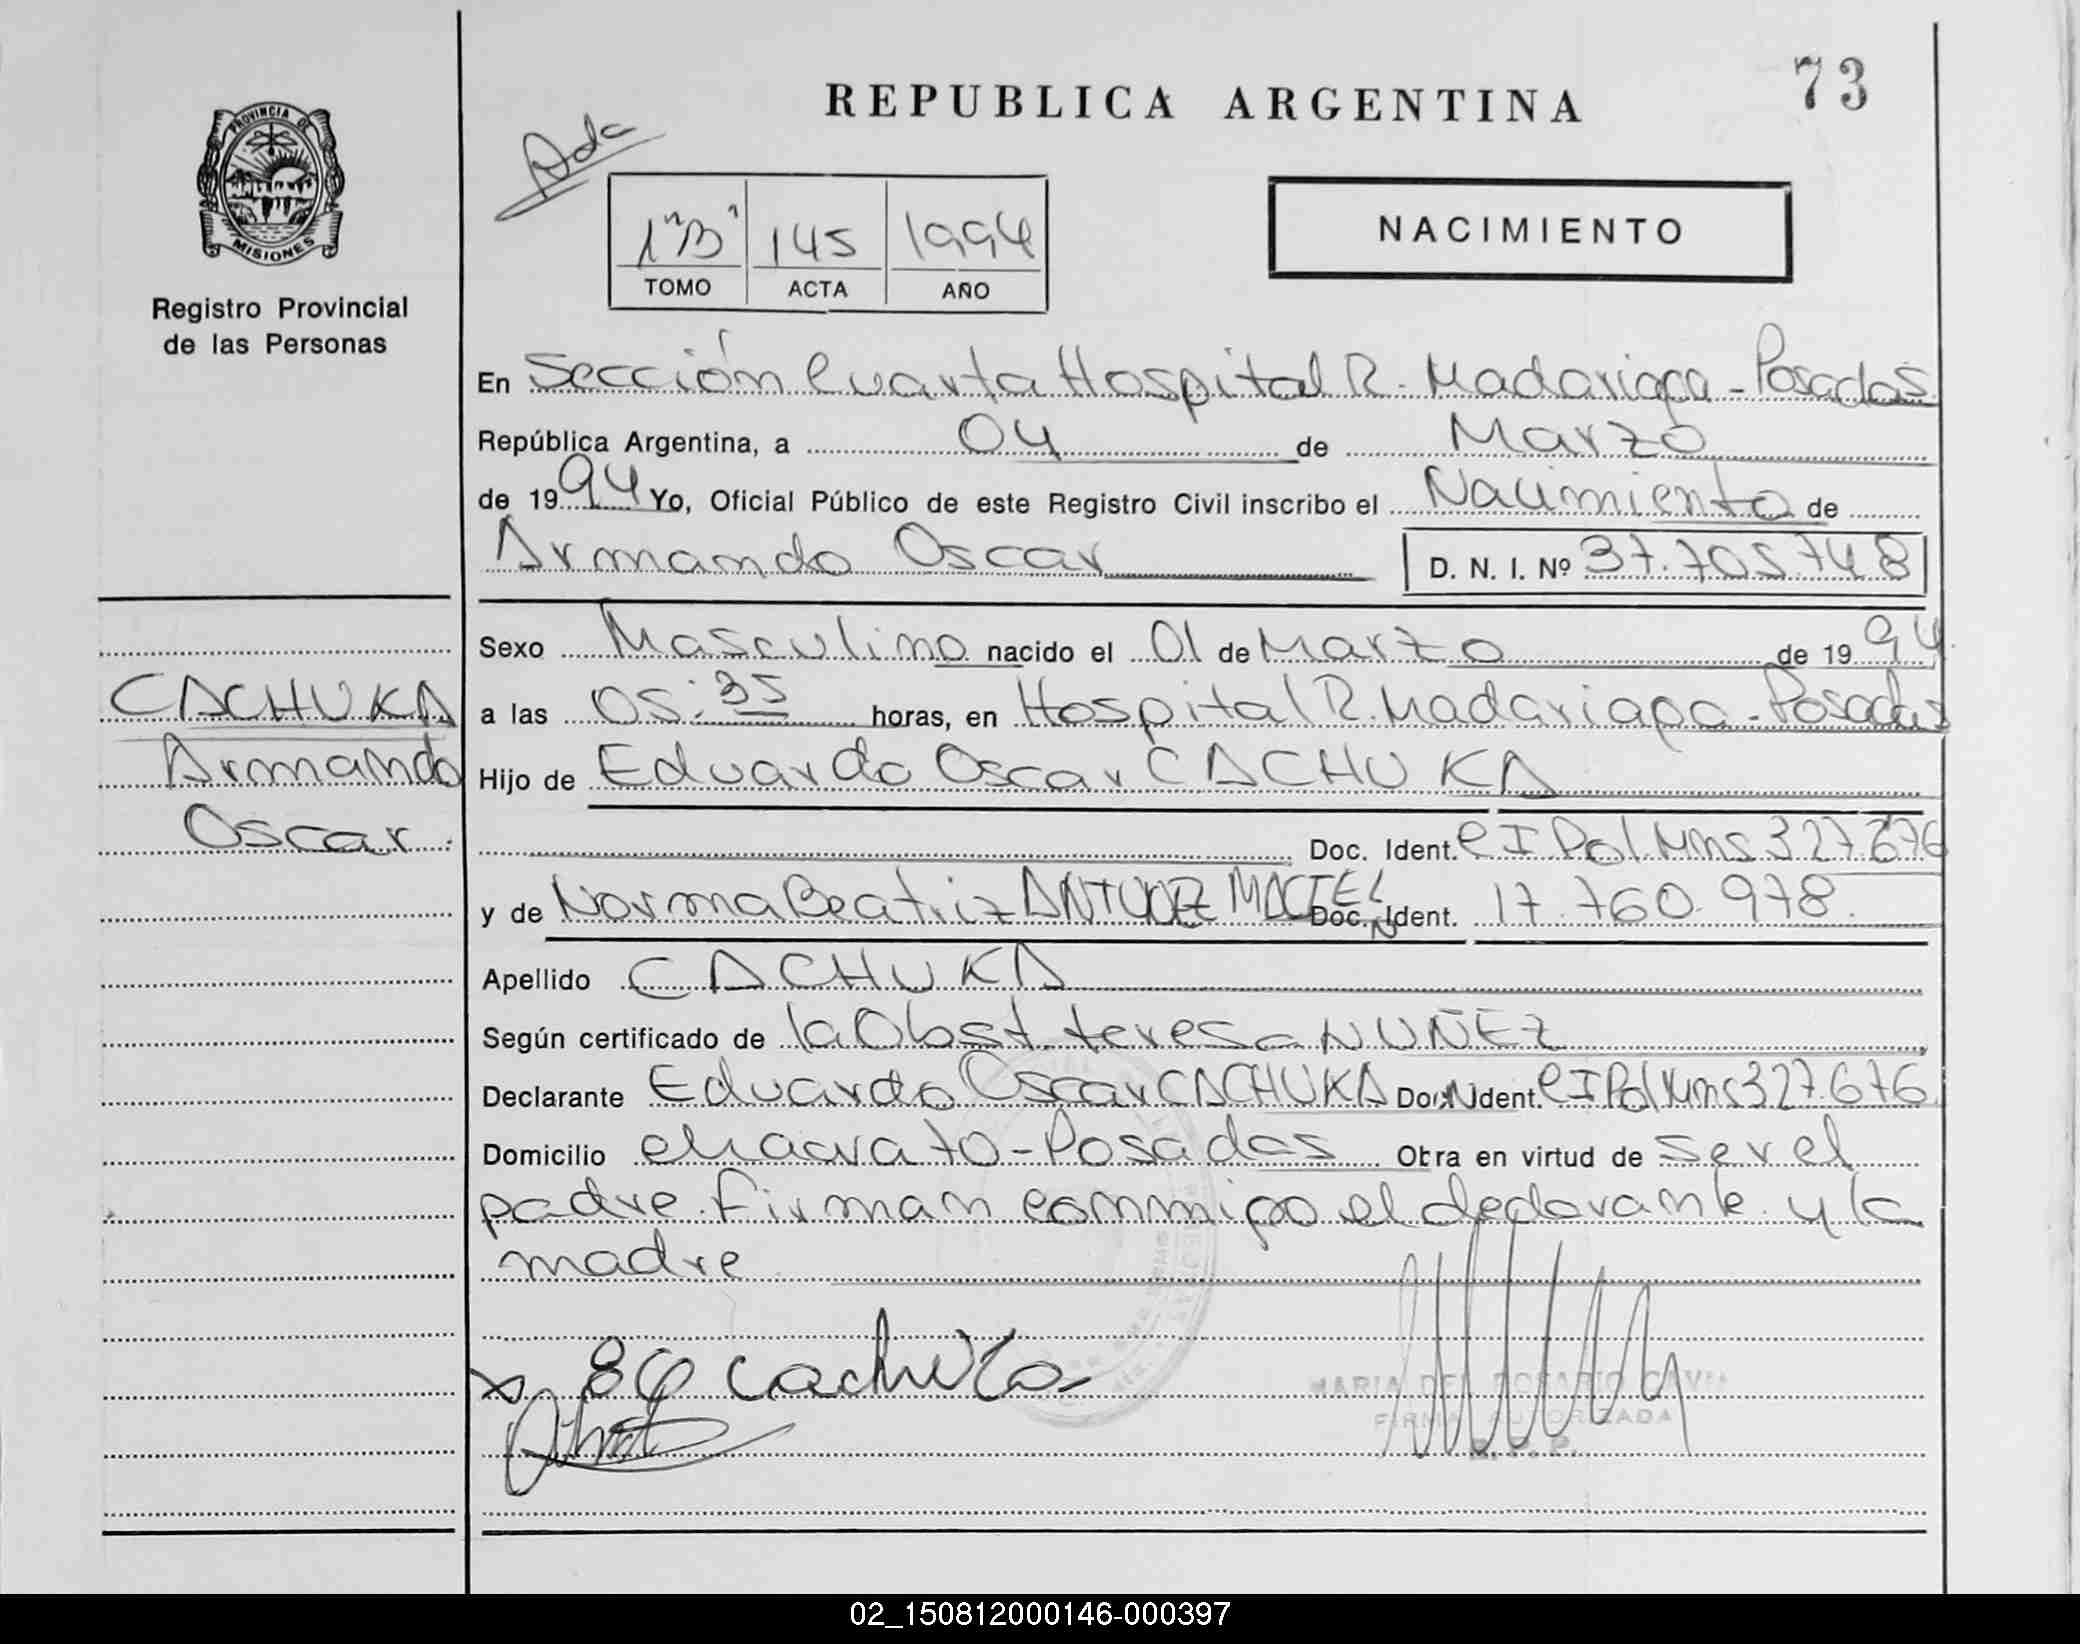 73
REPUBLICA ARGENTINA
PROVINCIA DE
MISIONES
Registro Provincial
de las Personas
1º"B" 145 1994
TOMO ACTA AÑO
NACIMIENTO
En Sección Cuarta Hospital R. Madariaga - Posadas
República Argentina, a 04 de Marzo
de 1994 Yo, Oficial Público de este Registro Civil inscribo el Nacimiento de
Armando Oscar D. N. I. Nº 37.705.748
Sexo Masculino nacido el 01 de Marzo de 1994
CACHUKA
Armando
Oscar.
a las 05:35 horas, en Hospital R. Madariaga - Posadas
Hijo de Eduardo Oscar CACHUKA
Doc. Ident. CI Pol Mnes 327.676
y de Norma Beatriz ANTUNEZ MACIEL Doc. Ident. 17.760.978.
Apellido CACHUKA
Según certificado de la Obst. teresa NUÑEZ
Declarante Eduardo Oscar CACHUKA Doc. Ident. CI Pol Mnes 327.676
Domicilio Posadas Obra en virtud de ser el
padre. firman conmigo el declarante y la
madre
Cachuka
MARIA DEL ROSARIO
FIRMA AUTORIZADA
R. P. P.
02_150812000146-000397